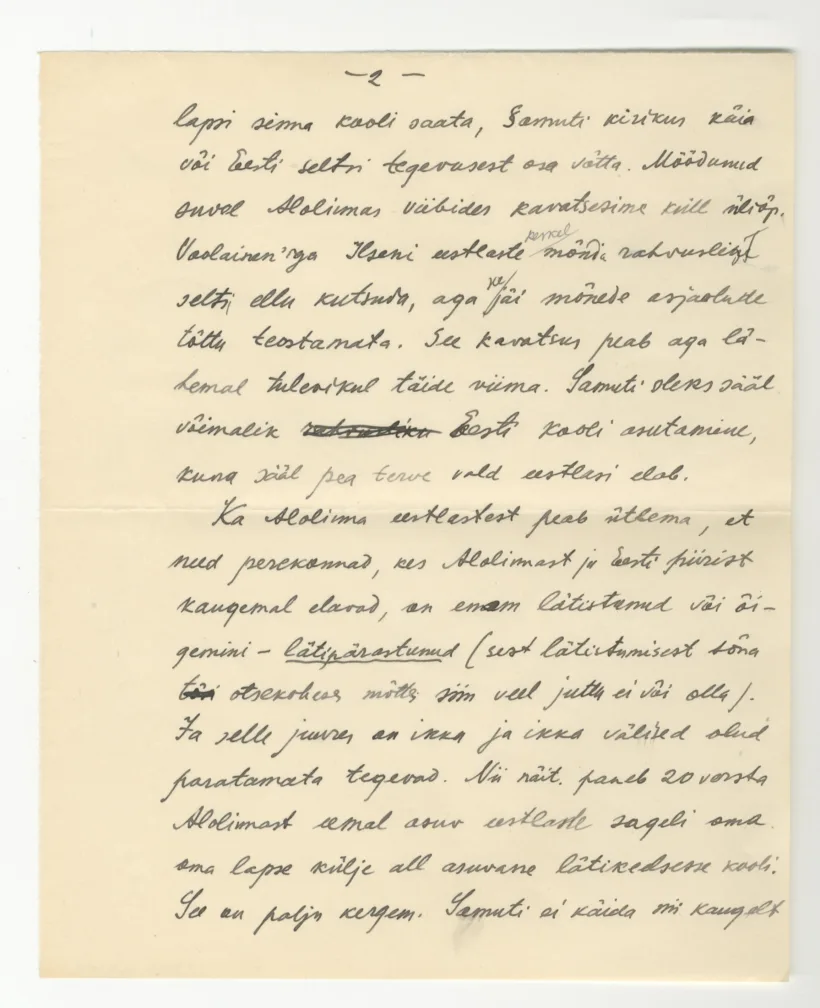 - 2 -
lapsi sinna kooli saata, Samuti kirikus käia
või Eesti seltsi tegevusest osa võtta. Möödunud
suvel Alolinnas viibides kavatsesime küll üliõp.
Voolainen'ga Ilseni eestlaste keskel mõnda rahvuslikku
seltsi ellu kutsuda, aga see jäi mõnede asjaolude
tõttu teostamata. See kavatsus peab aga lä-
hemal tulevikul täide viima. Samuti oleks sääl
võimalik rahvusliku Eesti kooli asutamine,
kuna sääl pea terve vald eestlasi elab.
Ka Alolinna eestlastest peab ütlema, et
need perekonnad, kes Alolinnast ja Eesti piirist
kaugemal elavad, on enam lätistunud või õi-
gemini - lätipärastunud (sest lätistumisest sõna
otsekoheses mõttes siin veel juttu ei või olla).
Ja selle juures on ikka ja ikka välised olud
paratamata tegevad. Nii näit. paneb 20 versta
Alolinnast eemal asuv eestlaste sageli oma
oma lapse külje all asuvasse lätikeelsesse kooli.
See on palju kergem. Samuti ei käida nii kaugelt